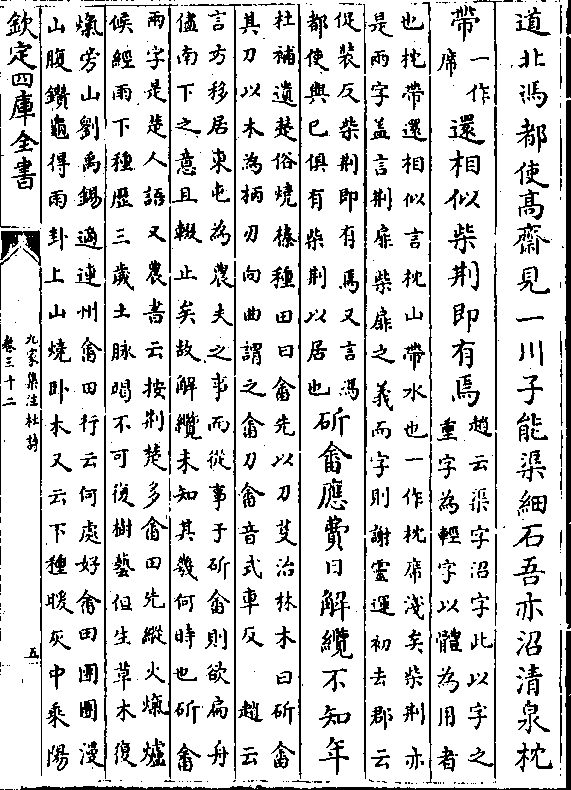 道北馮都使髙齋見一川子能渠細石吾亦沼清泉枕
帶一作席還相似柴荆即有焉趙云渠字沼字此以字之重字為輕字以體為用者
也枕帶還相似言枕山帶水也一作枕席淺矣柴荆亦
是兩字盖言荆扉柴扉之義而字則謝靈運初去郡云
促装反柴荆即有焉又言馮
都使與已俱有柴荆以居也斫畬應費日解纜不知年
杜補遺楚俗燒榛種田曰畬先以刀芟治林木曰斫畬
其刀以木為柄刃向曲謂之畬刀畬音式車反 趙云
言方移居東屯為農夫之事而從事于斫畬則欲扁舟
儘南下之意且輟止矣故解纜未知其㡬何時也斫畬
兩字是楚人語又農書云按荆楚多畬田先縱火熂爐
候經雨下種歴三歲土脉竭不可復樹藝但生草木復
熂旁山劉禹錫適連州畬田行云何處好畬田團團漫
山腹鑽龜得雨卦上山燒卧木又云下種暖灰中乘陽
欽定四庫全書
九家集注杜詩
卷三十二
五